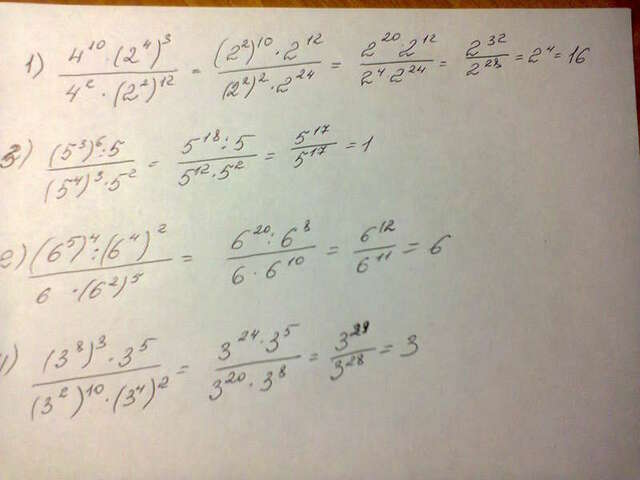 1) \frac{4^{10} \cdot (2^4)^3}{4^2 \cdot (2^2)^{12}} = \frac{(2^2)^{10} \cdot 2^{12}}{(2^2)^2 \cdot 2^{24}} = \frac{2^{20} \cdot 2^{12}}{2^4 \cdot 2^{24}} = \frac{2^{32}}{2^{28}} = 2^4 = 16
3) \frac{(5^3)^6 : 5}{(5^4)^3 \cdot 5^2} = \frac{5^{18} : 5}{5^{12} \cdot 5^2} = \frac{5^{17}}{5^{17}} = 1
2) \frac{(6^5)^4 : (6^4)^2}{6 \cdot (6^2)^5} = \frac{6^{20} : 6^8}{6 \cdot 6^{10}} = \frac{6^{12}}{6^{11}} = 6
) \frac{(3^8)^3 \cdot 3^5}{(3^2)^{10} \cdot (3^4)^2} = \frac{3^{24} \cdot 3^5}{3^{20} \cdot 3^8} = \frac{3^{29}}{3^{28}} = 3